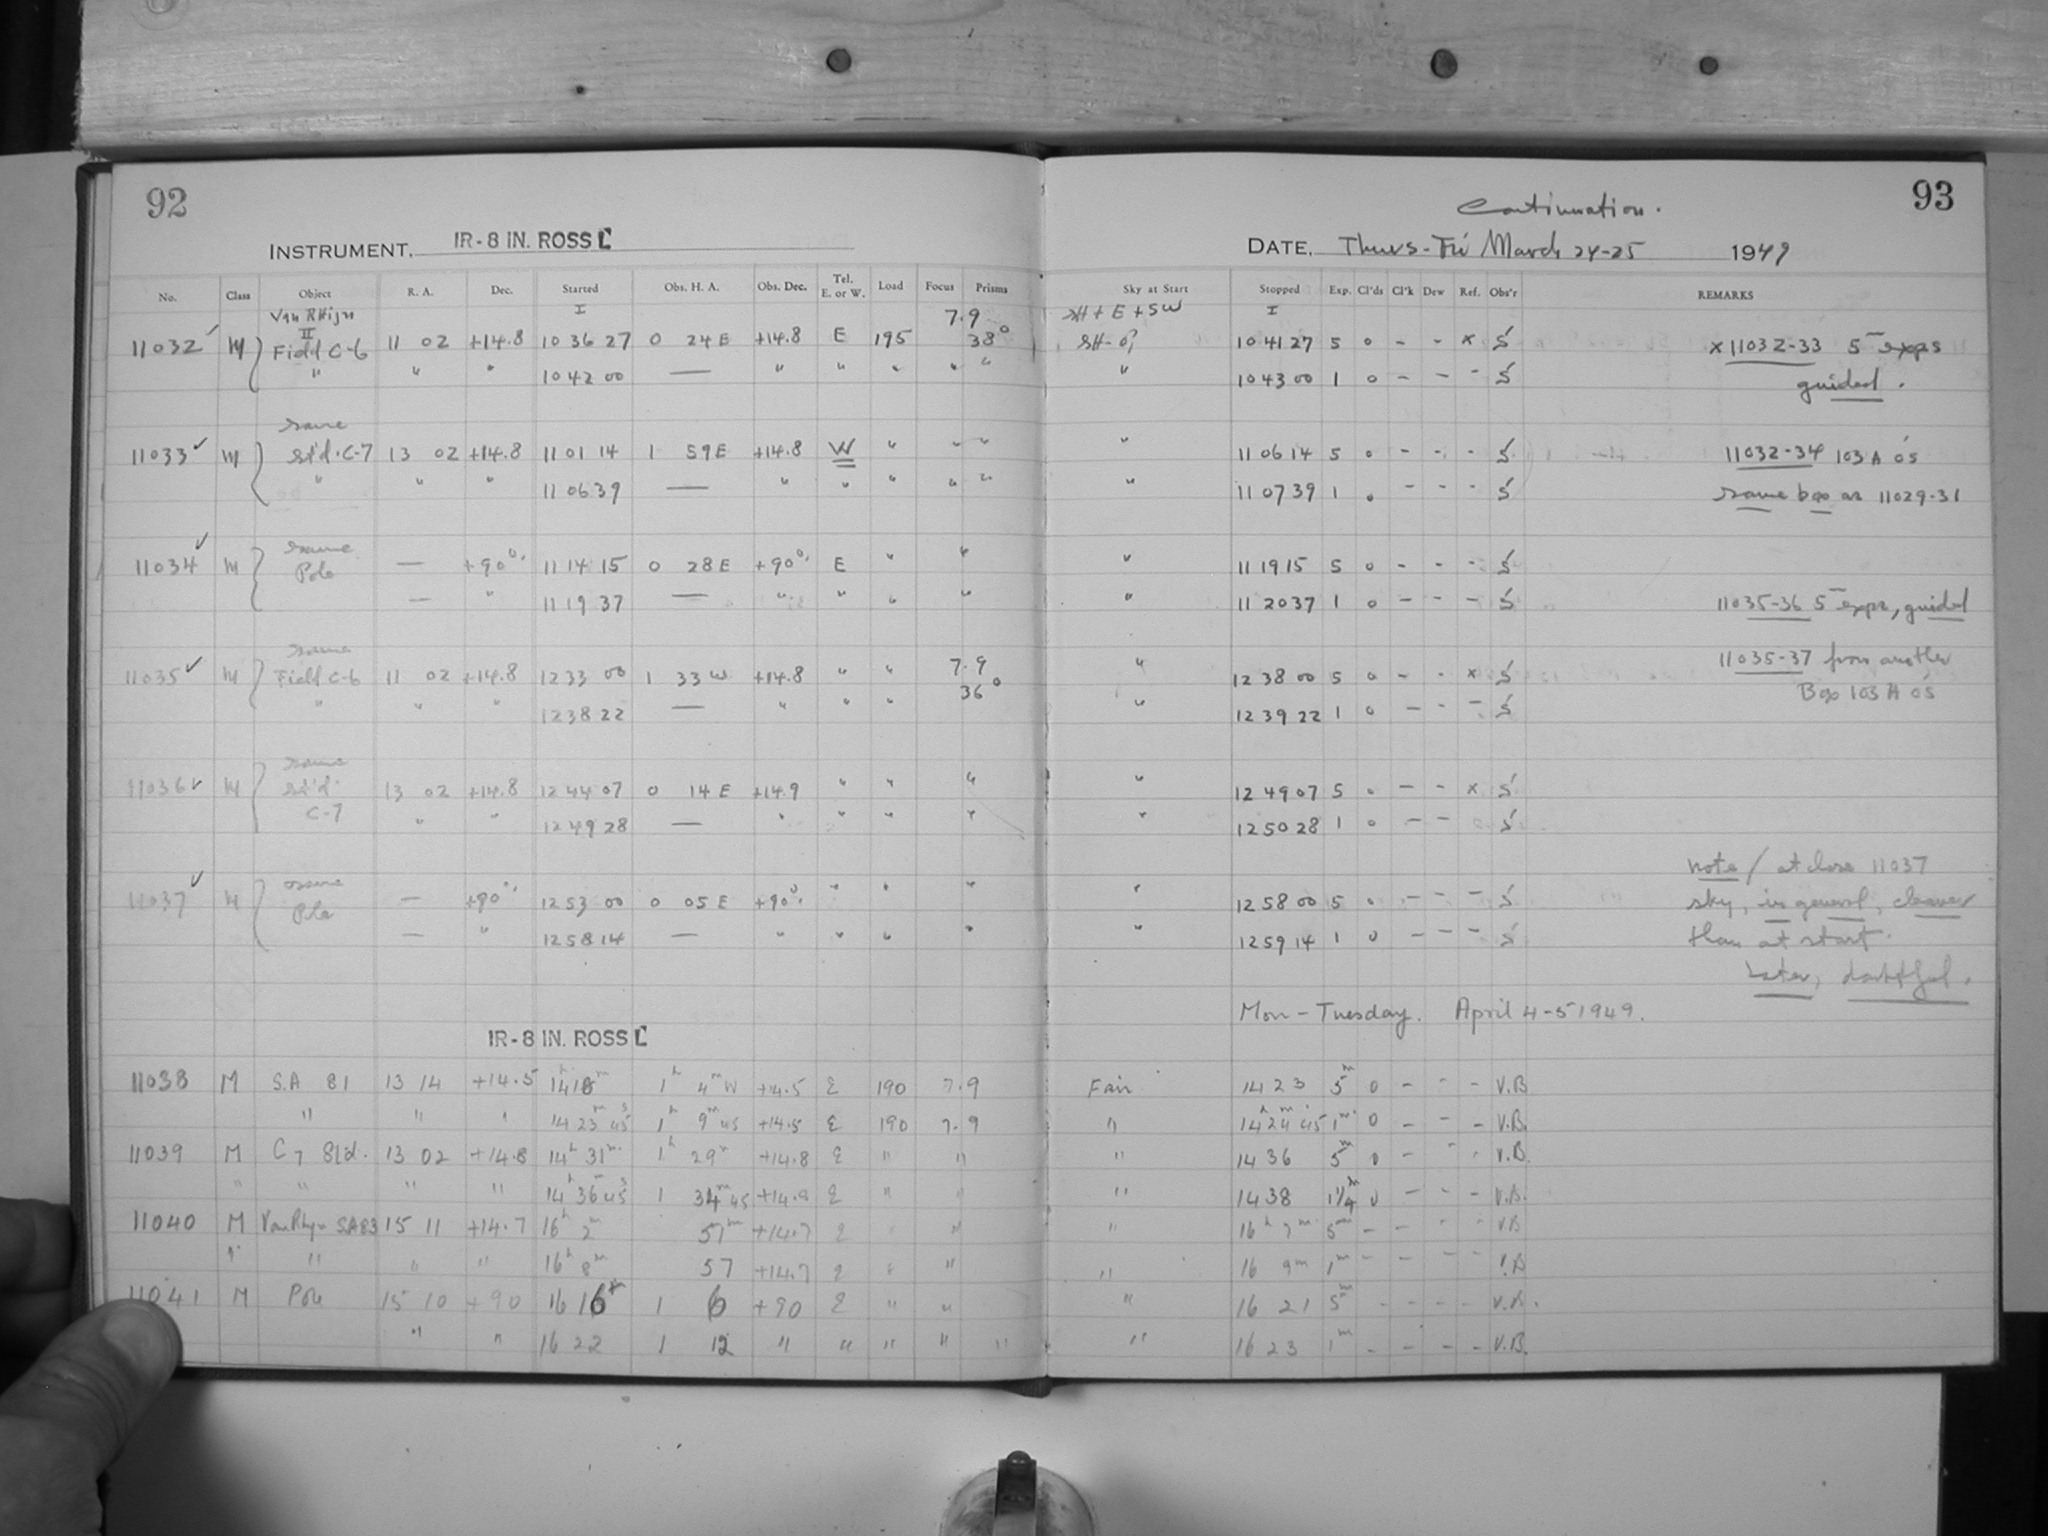 92
INSTRUMENT, IR-8 IN. ROSS
No. Class Object R. A. Dec. Started Obs. H. A. Obs. Dec. Tel. E. or W. Load Focus Prisms
Van Rhijn I 7.9
11032 ✓ M II Field C-6 11 02 +14.8 10 36 27 0 24 E +14.8 E 195 38°
" " " 10 42 00 — " " " " "
same
11033 ✓ M St'd. C-7 13 02 +14.8 11 01 14 1 59 E +14.8 W " " "
" " " 11 06 39 — " " " " "
same
11034 ✓ M Pole — +90° 11 14 15 0 28 E +90° E " "
— " 11 19 37 — " " " "
same
11035 ✓ M Field C-6 11 02 +14.8 12 33 00 1 33 W +14.8 " " 7.9 36°
" " " 12 38 22 — " " "
same
11036 ✓ M St'd. 13 02 +14.8 12 44 07 0 14 E +14.9 " " "
C-7 " " 12 49 28 — " " " "
same
11037 ✓ M Pole — +90° 12 53 00 0 05 E +90° " " "
— " 12 58 14 — " " " "
IR-8 IN. ROSS
11038 M S.A 81 13 14 +14.5 14 18m 1h 4m W +14.5 E 190 7.9
" " " 14 23m 45s 1h 9m 45 +14.5 E 190 7.9
11039 M C7 Std. 13 02 +14.8 14h 31m 1h 29m +14.8 E " "
" " " " 14h 36m 45s 1 34m 45 +14.8 E " "
11040 M Van Rhyn SA83 15 11 +14.7 16h 2m 51m +14.7 E " "
" " " " 16h 8m 57 +14.7 E " "
11041 M Pole 15 10 +90 16 16m 1 6 +90 E " "
" " 16 22 1 12 " " " " "
Continuation. 93
DATE, Thurs-Fri March 24-25 1949
Sky at Start Stopped Exp. Cl'ds Cl'k Dew Ref. Obs'r REMARKS
SH + E + SW I
10 41 27 5 0 - - x S x 11032-33 5 exps
" 10 43 00 1 0 - - - S guided.
" 11 06 14 5 0 - - - S 11032-34 103 A o's
" 11 07 39 1 0 - - - S same box as 11029-31
" 11 19 15 5 0 - - - S
" 11 20 37 1 0 - - - S 11035-36 5 exps, guided
" 12 38 00 5 0 - - x S 11035-37 from another
" 12 39 22 1 0 - - - S Box 103 A o's
" 12 49 07 5 0 - - x S
" 12 50 28 1 0 - - S
note / at close 11037
" 12 58 00 5 0 - - - S sky, in general, clearer
" 12 59 14 1 0 - - - S than at start.
Later, doubtful.
Mon - Tuesday. April 4-5 1949.
Fair 14 23 5m 0 - - - V.B
" 14h 24m 45 1m 0 - - - V.B.
" 14 36 5m 0 - - - V.B.
" 14 38 1 1/4m 0 - - - V.B.
" 16h 7m 5m - - - - V.B
" 16 9m 1m - - - - V.B
" 16 21 5m - - - - V.B.
" 16 23 1m - - - - V.B.